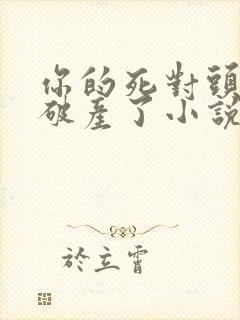 你的死對頭
破產了小說
於立霄